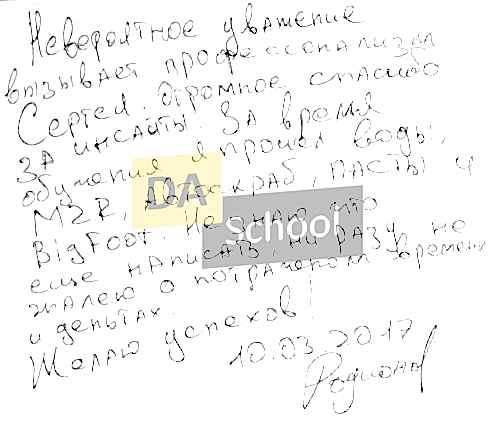 Невероятное уважение
вызывает профессионализм
Сергея. Огромное спасибо
за инсайты. За время
обучения я прошел воды,
M2R, автоскраб, пасты и
BigFoot. Не знаю что
еще написать, ни разу не
жалею о потраченом времени
и деньгах.
Желаю успехов!
10.03.2017
Родионов
DA
School